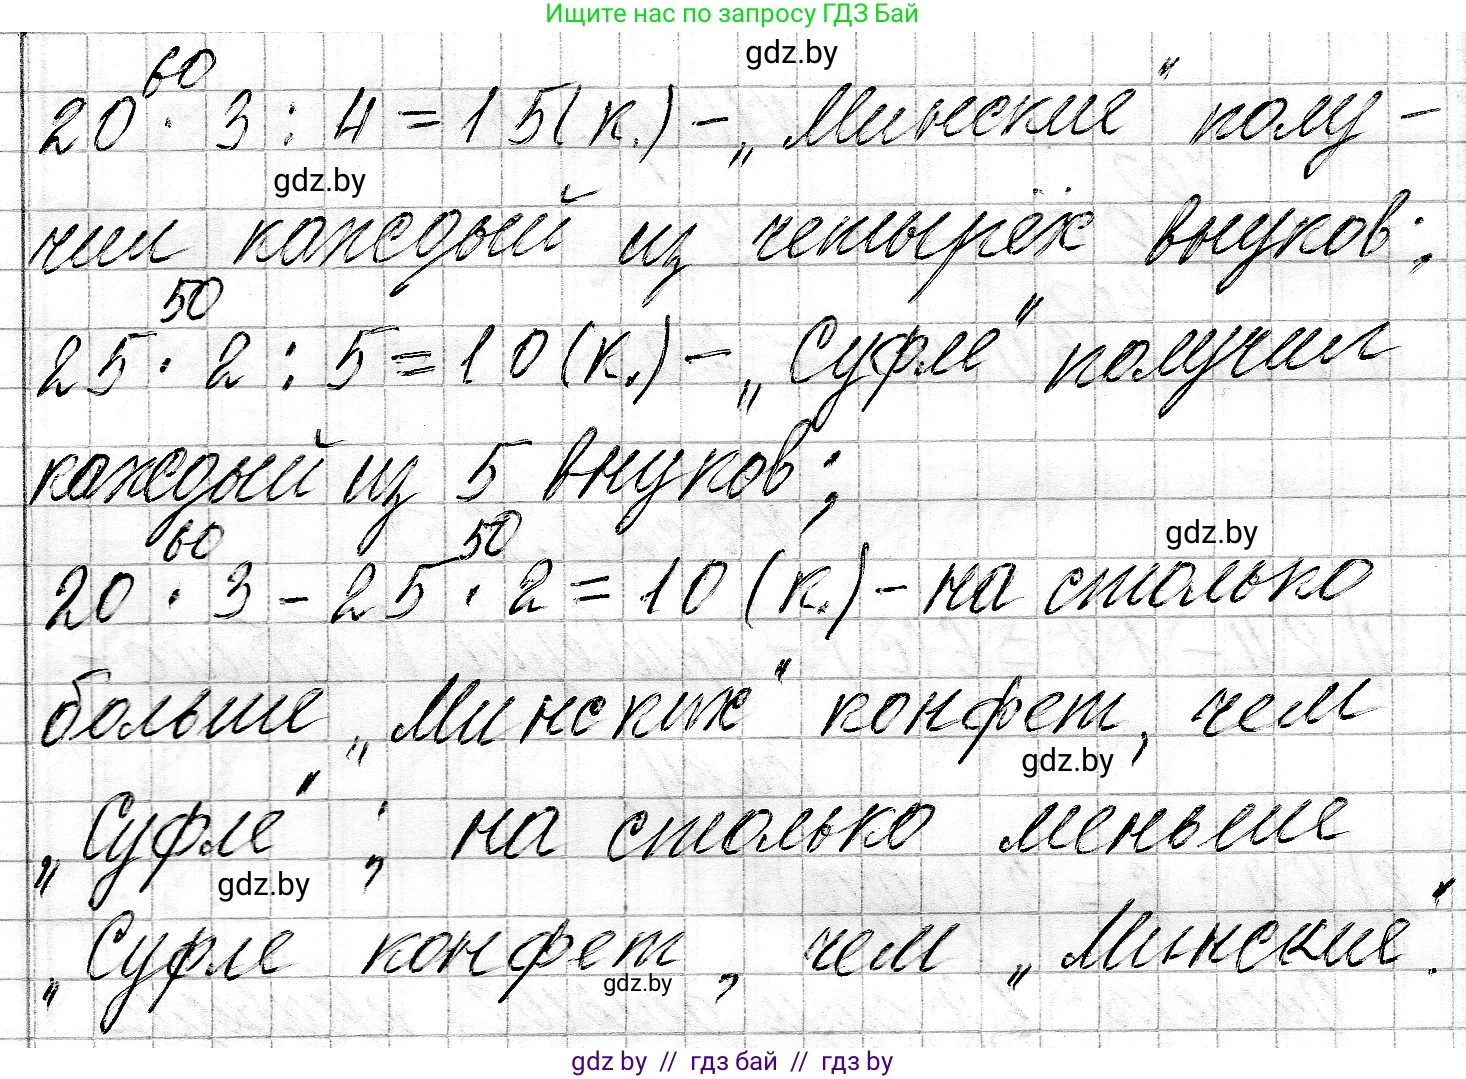 Ищите нас по запросу ГДЗ Бай
gdz.by
60
20 · 3 : 4 = 15 (к.) – „Минские" полу-
gdz.by
чил каждый из четырёх внуков;
50
25 · 2 : 5 = 10 (к.) – „Суфле" получил
каждый из 5 внуков;
gdz.by
60 50
20 · 3 – 25 · 2 = 10 (к.) – на столько
больше „Минских" конфет, чем
gdz.by
„Суфле"; на столько меньше
gdz.by
„Суфле конфет, чем „Минские".
gdz.by
gdz by // гдз бай // гдз by